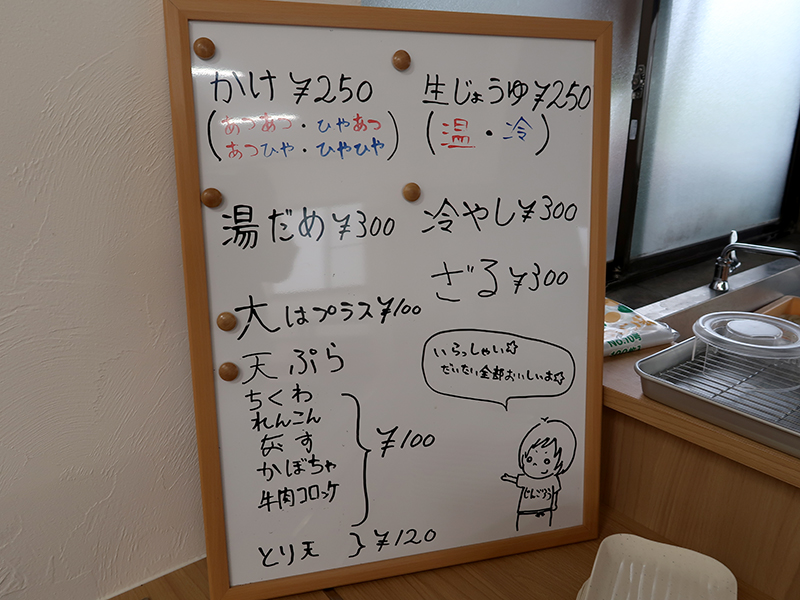 かけ ¥250
(あつあつ・ひやあつ
あつひや・ひやひや)
生じょうゆ ¥250
(温・冷)
湯だめ ¥300
冷やし ¥300
ざる ¥300
大はプラス ¥100
天ぷら
ちくわ
れんこん
なす
かぼちゃ
牛肉コロッケ
¥100
とり天 ¥120
いらっしゃい☆
だいたい全部おいしいよ☆